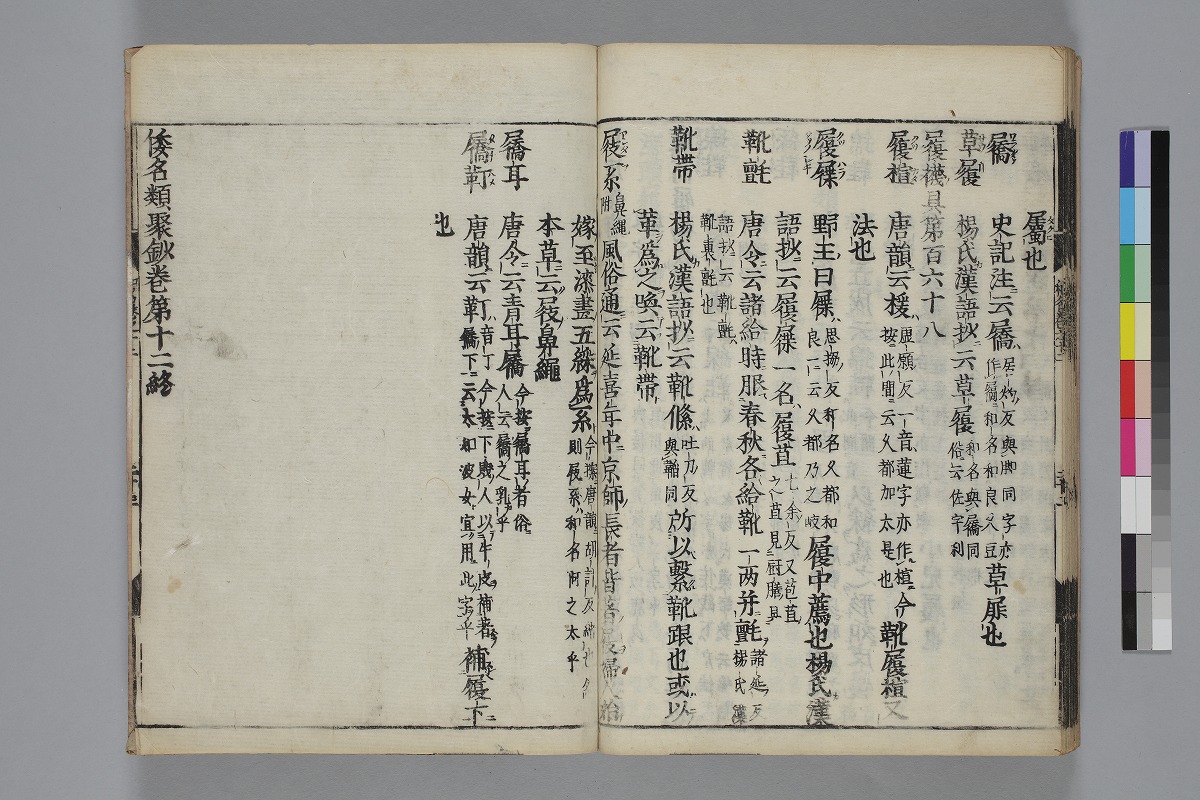 屩也
屩 史記注云屩 居灼反與脚同字亦作𪨗和名和良久豆 草屝也
草履 楊氏漢語抄云草履 和名與屩同俗云佐宇利
履襪具第百六十八
履楦 唐韻云楥 虛願反一音蓮字亦作楦今按此間云久都加太是也 靴履楦又
法也
履屧 野王曰屧 思協反和名久都和良一云久都乃之岐 履中薦也楊氏漢
語抄云履屧一名履苴 七余反又苞苴之苴見厨膳具
靴氈 唐令云諸給時服春秋各給靴一兩并氈 諸延反楊氏漢
語抄云靴氈靴裏氈也
靴帶 楊氏漢語抄云靴絛 吐刀反與韜同 所以繫靴跟也或以
革爲之喚云靴帶
屐系 鼻繩附 風俗通云延喜年中京師長者皆着屐婦人始
嫁至漆畫五綵爲系 今按唐韻胡計反緒也則屐系和名阿之太乎
本草云屐鼻繩
屩耳 唐令云青耳屩 今按屩耳者俗人云屩之乳乎
屩靪 唐韻云靪 音丁今按下輿人以牛皮補着屩下云太知波女宜用此字乎 補履下
也
倭名類聚鈔卷第十二終